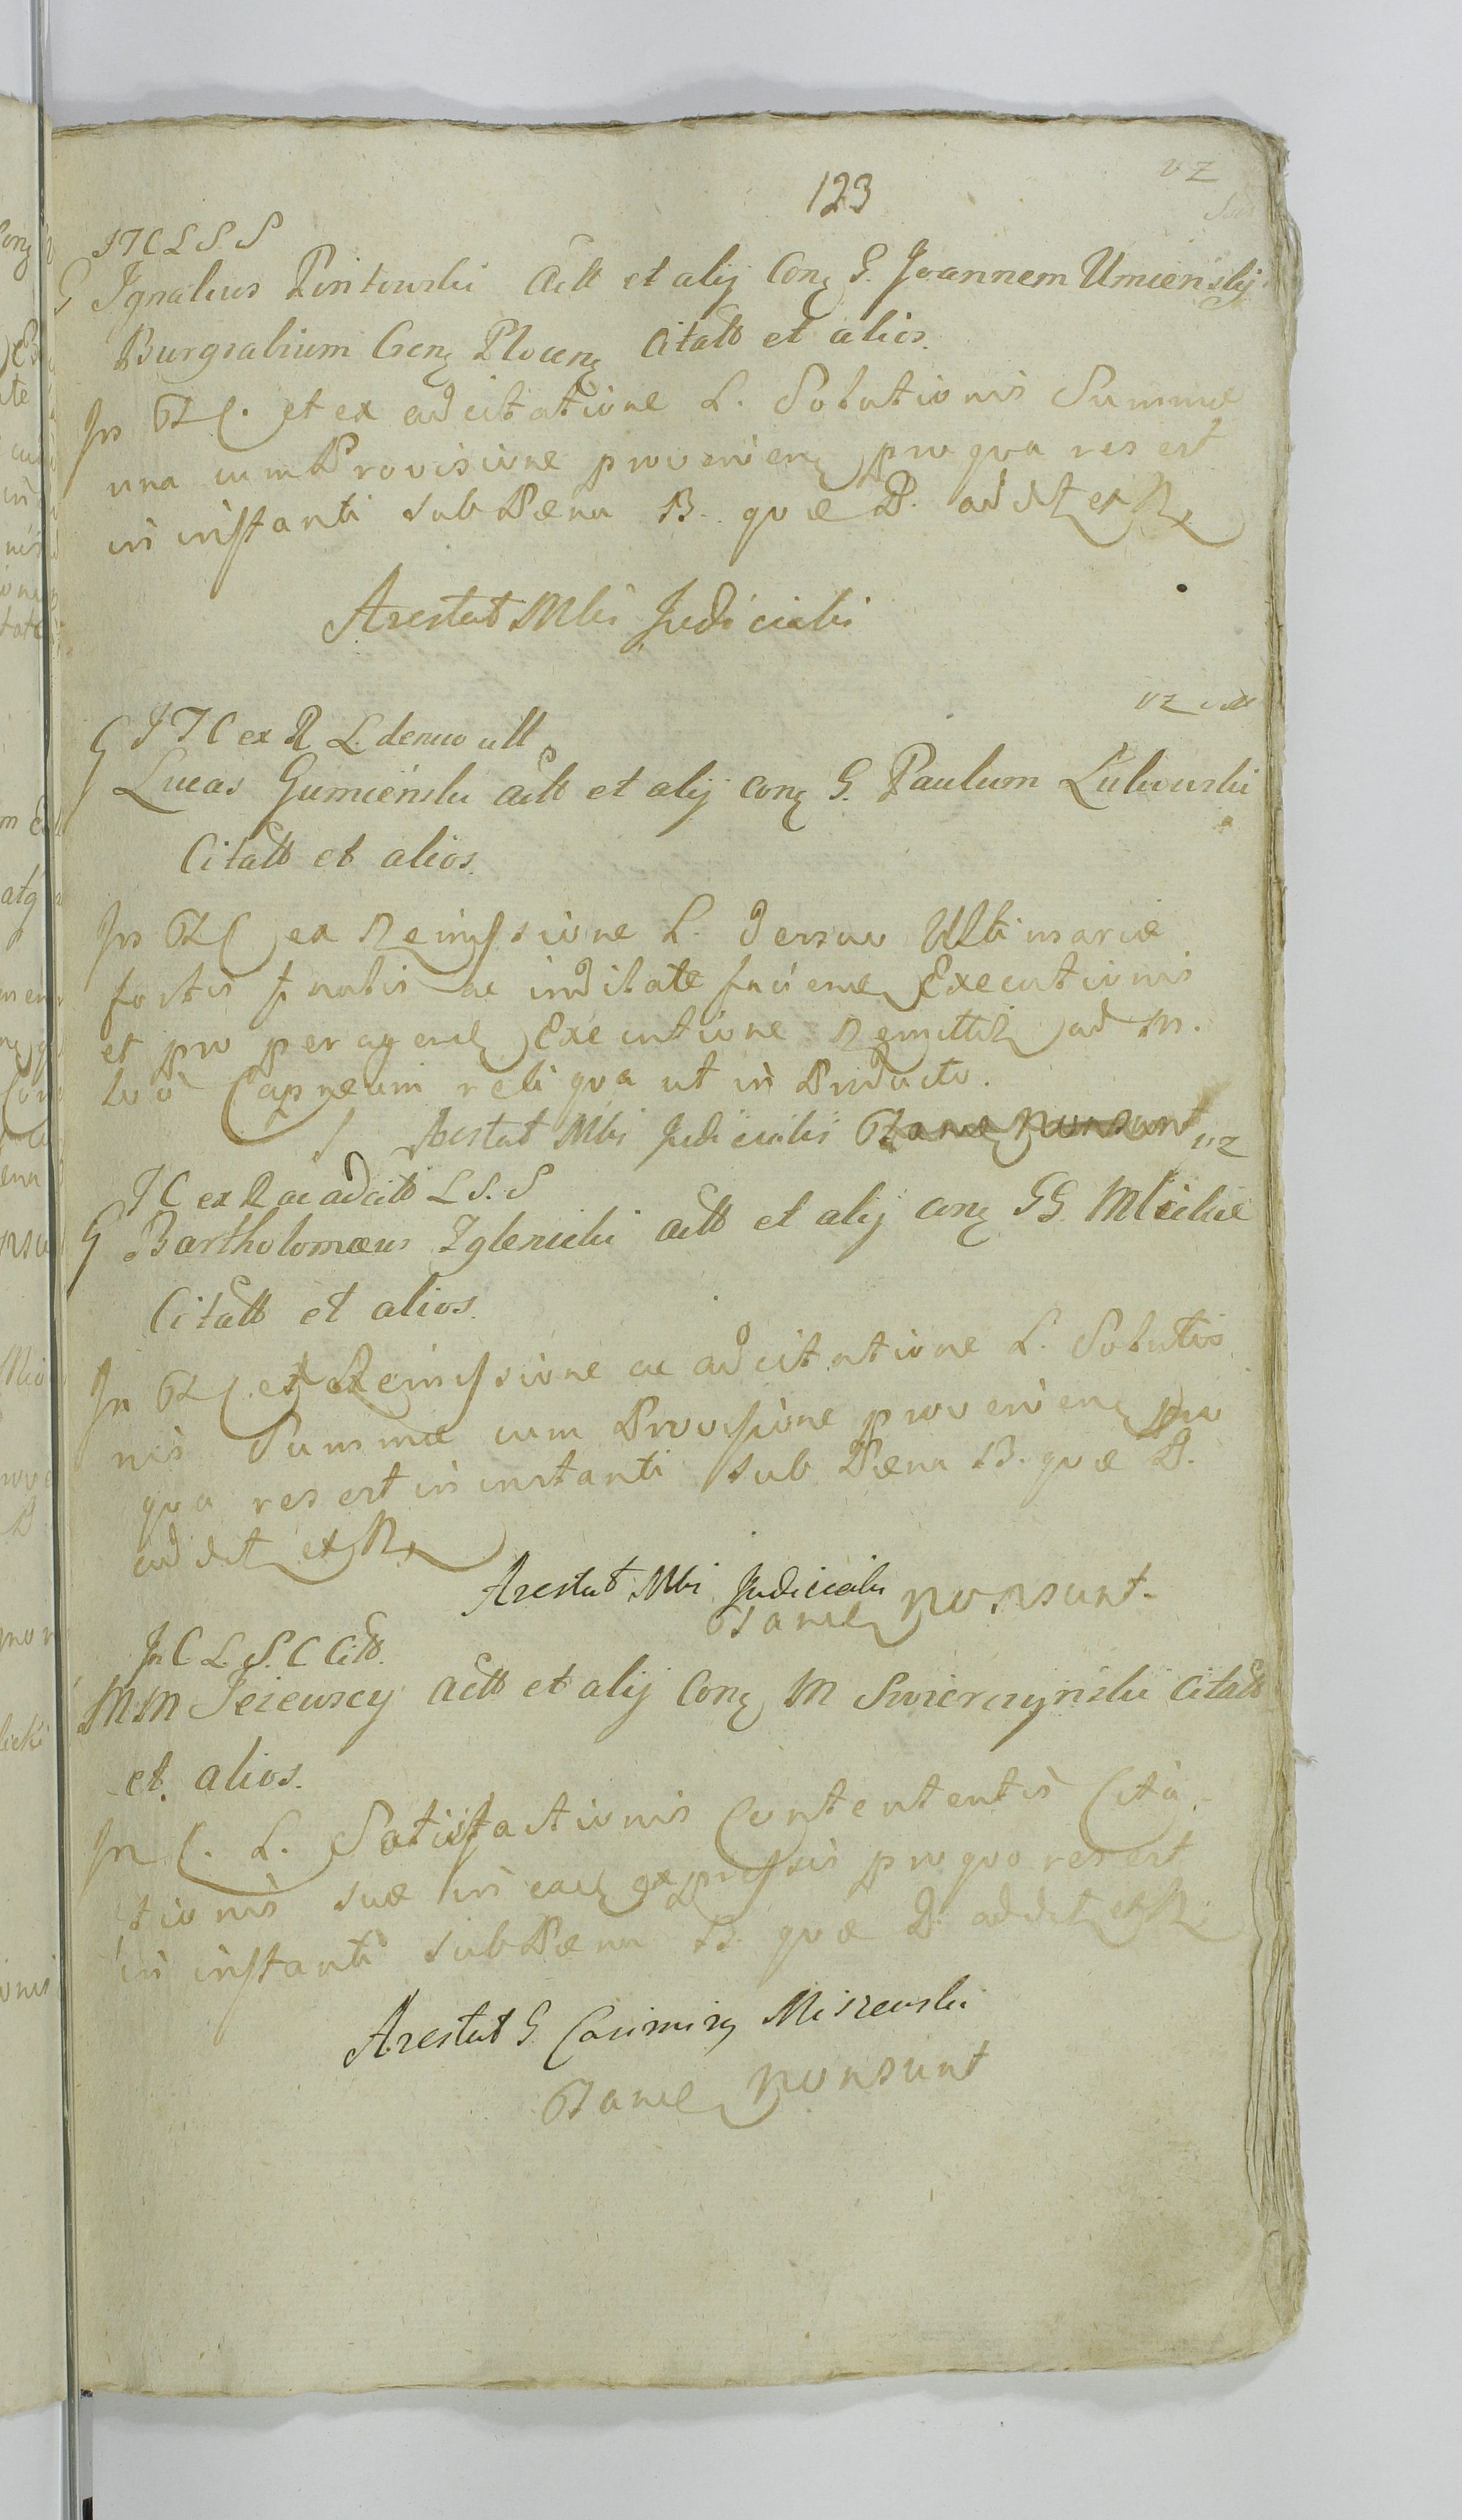 123
VZ
J T C L S. S
G Ignatius Pintowski Actt et alij Con̄ G. Joannem Umienski
Burgrabium Cen̄ Plocen̄ Citatt et alios.
In TC. et ex adcitatione L. Solutionis Summæ
una cum Provisione provenien̄ pro qua res est
in instanti sub Pæna B. quæ P. addit et R
Arestat Mtis Judicialis
VZ
J T C ex R L. denuo ult
G Lucas Gumienski Actt et alij con̄ G. Paulum Lubowski
Citatt et alios.
In TC ex Remissione L. denuo Ultimariæ
fortis ac facien̄ Executionis
et pro peragen̄ Executione Remittit ad M.
loci Capneum reliqua ut in Producto.
Arestat Mtis Judicialis Tamen non sunt VZ
J C ex R ac adcitt L S. S
G Bartholomæus Zglenicki Actt et alij con̄ GG. Mlickie
Citatt et alios.
In TC. ex Remissione ac adcitatione L. Solutio
nis Summæ cum Provisione provenien̄ pro
qua res est in instanti sub Pæna B. quæ P.
addit et R
Arestat Mtis Judicialis
Tamen non sunt.
In C L. S. C Citt.
MM Jezewscy Actt et alij Con̄ M Swierczynski Citatt
et alios.
In C. L. Satisfactionis Contententis Cita
tionis suæ in ead expressis pro quo res est
in instanti sub Pæna B. quæ P. addit et R
Arestat G. Casimir Miszewski
Tamen non sunt